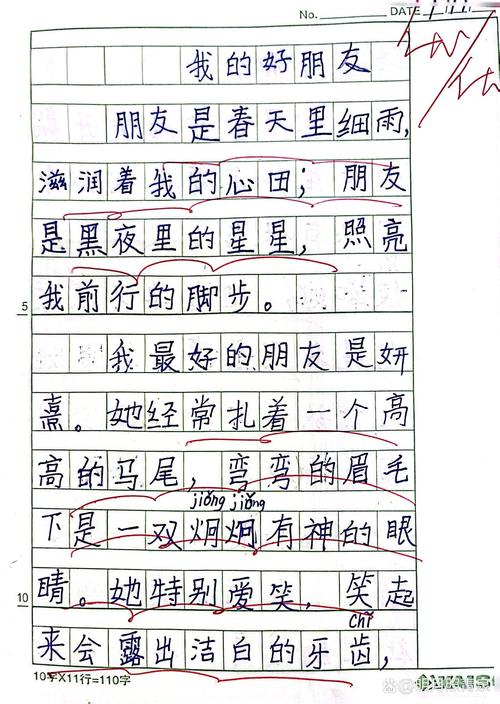 No. DATE
我的好朋友
朋友是春天里细雨,
滋润着我的心田；朋友
是黑夜里的星星，照亮
5
我前行的脚步。
我最好的朋友是妍
熹。她经常扎着一个高
高的马尾，弯弯的眉毛
jiǒng jiǒng
下是一双炯炯有神的眼
10
睛。她特别爱笑，笑起
chǐ
来会露出洁白的牙齿，
10字X11行=110字